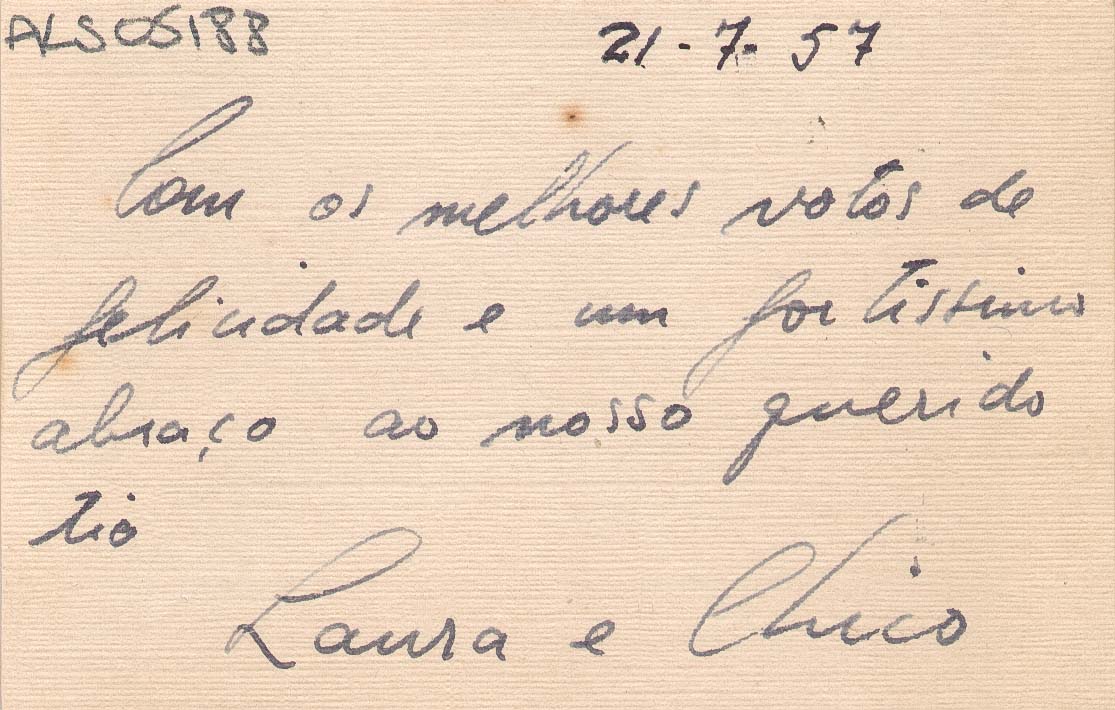 ALS05188
21-7-57
Com os melhores votos de
felicidade e um fortissimo
abraço ao nosso querido
tio
Laura e Chico